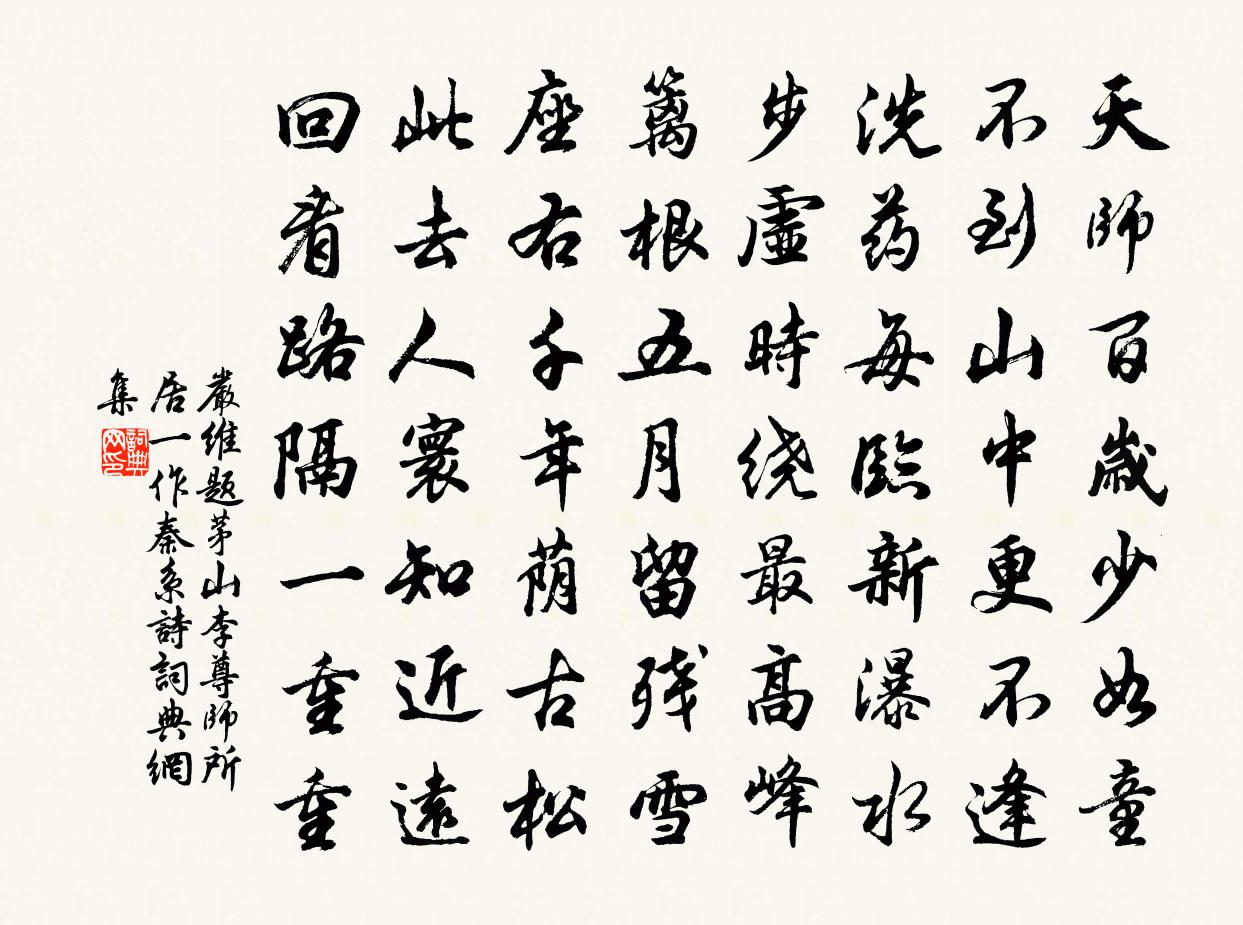 天師百歲少如童
不到山中更不逢
洗药每臨新瀑水
步虛時绕最高峰
籬根五月留残雪
座右千年荫古松
此去人寰知近遠
回看路隔一重重
嚴維題茅山李尊師所
居一作秦系詩詞典網
集
詞典网印